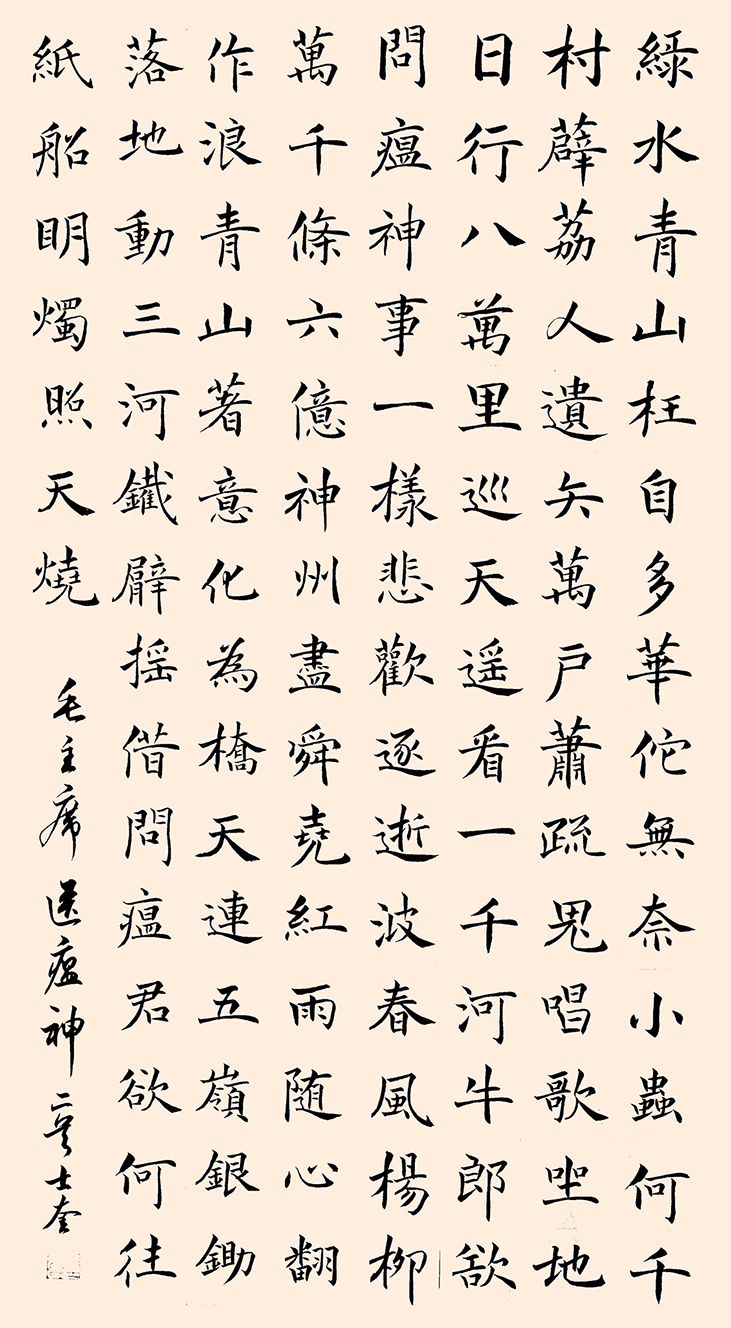 綠水青山枉自多華佗無奈小蟲何千
村薜荔人遺矢萬戶蕭疏鬼唱歌坐地
日行八萬里巡天遥看一千河牛郎欲
問瘟神事一樣悲歡逐逝波春風楊柳
萬千條六億神州盡舜堯紅雨随心翻
作浪青山著意化為橋天連五嶺銀鋤
落地動三河鐵臂摇借問瘟君欲何往
紙船明燭照天燒
毛主席送瘟神二 士奎